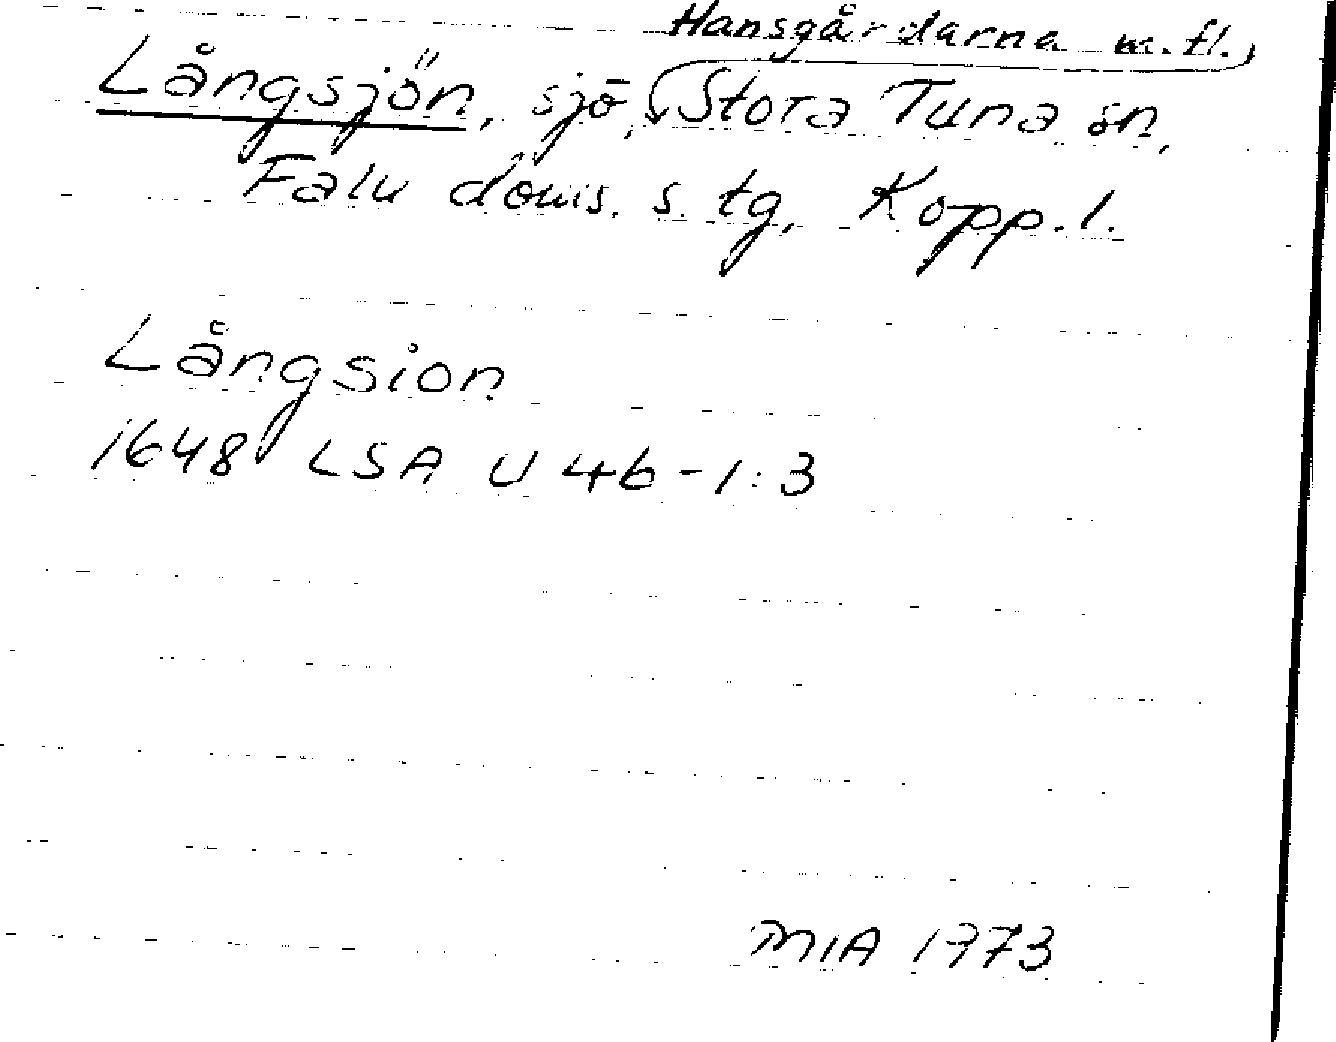 Hansgårdarna m.fl.,
Långsjön, sjö, Stora Tuna sn,
Falu doms. s. tg, Kopp. l.
Långsion
1648 LSA U 46-1:3
MIA 1973